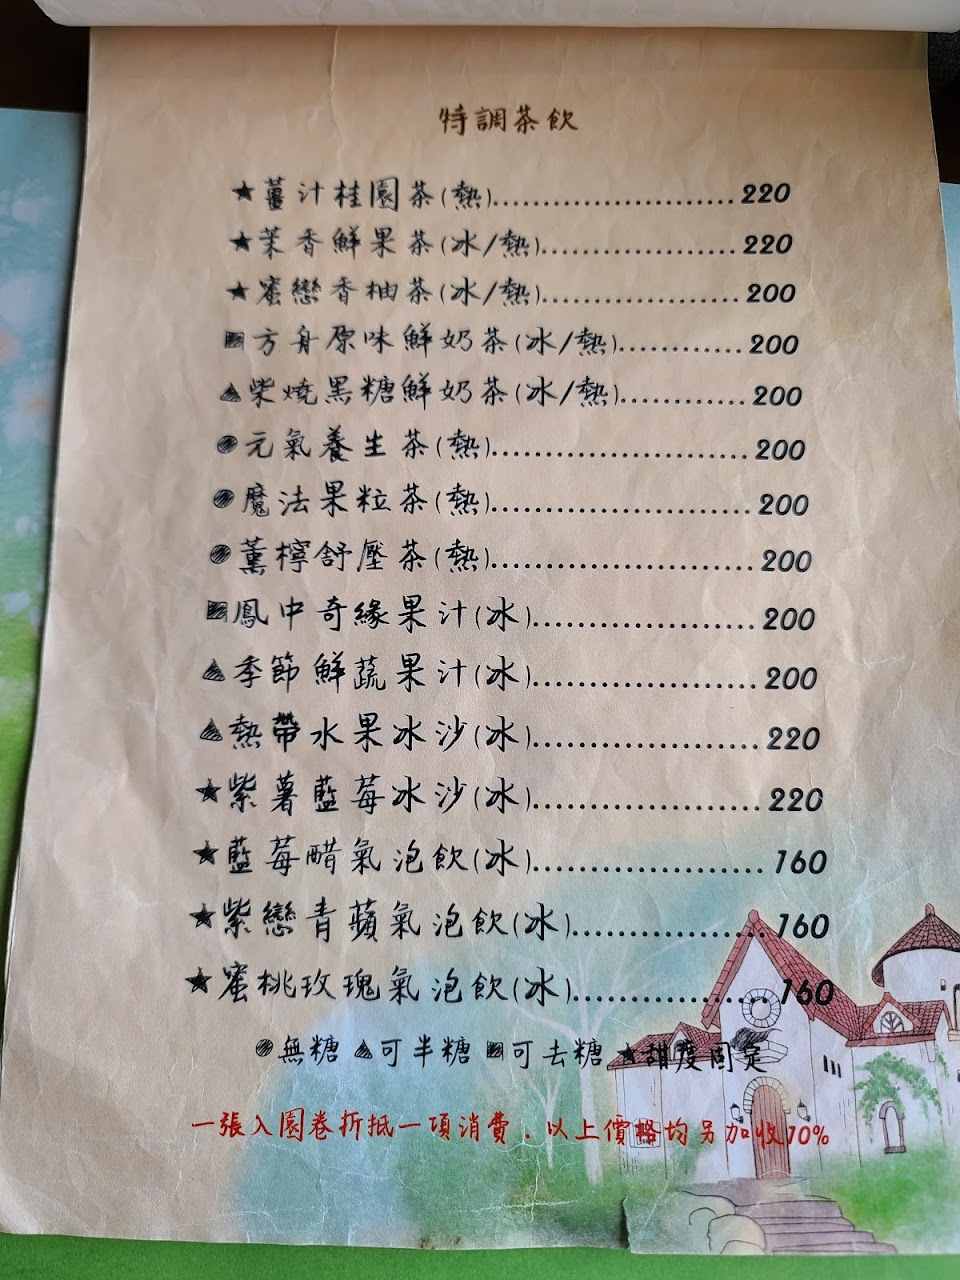 特調茶飲
★薑汁桂園茶(熱)........................220
★茉香鮮果茶(冰/熱)....................220
★蜜戀香柚茶(冰/熱)....................200
▨方舟原味鮮奶茶(冰/熱)............200
▲柴燒黑糖鮮奶茶(冰/熱)............200
●元氣養生茶(熱)........................200
●魔法果粒茶(熱)........................200
●薰檸舒壓茶(熱)........................200
▨鳳中奇緣果汁(冰)....................200
▲季節鮮蔬果汁(冰)....................200
▲熱帶水果冰沙(冰)....................220
★紫薯藍莓冰沙(冰)....................220
★藍莓醋氣泡飲(冰)....................160
★紫戀青蘋氣泡飲(冰)................160
★蜜桃玫瑰氣泡飲(冰)................160
●無糖 ▲可半糖 ▨可去糖 ★甜度固定
一張入園卷折抵一項消費．以上價格均另加收10%